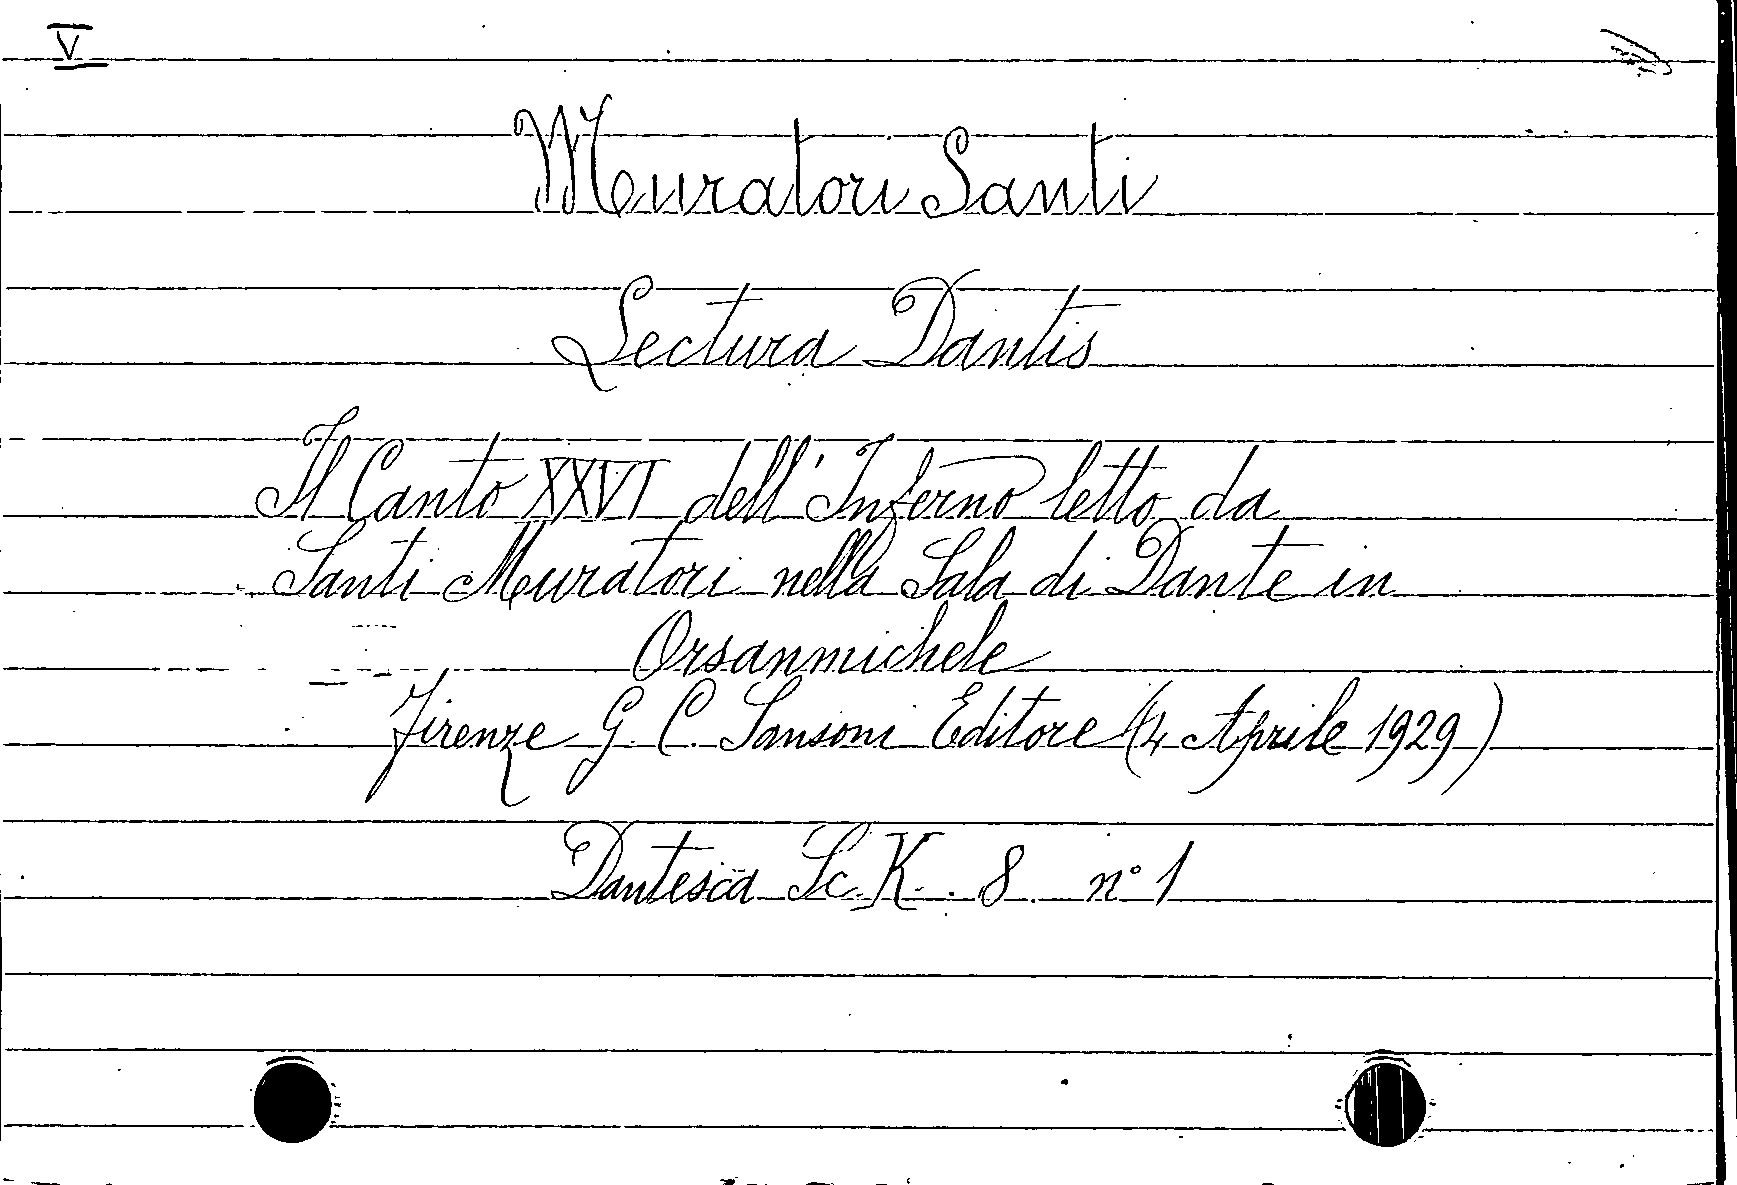 V
Muratori Santi
Lectura Dantis
Il Canto XXVI dell'Inferno letto da
Santi Muratori nella Sala di Dante in
Orsanmichele
Firenze G. C. Sansoni Editore (4 Aprile 1929)
Dantesca Sc. K. 8 n° 1